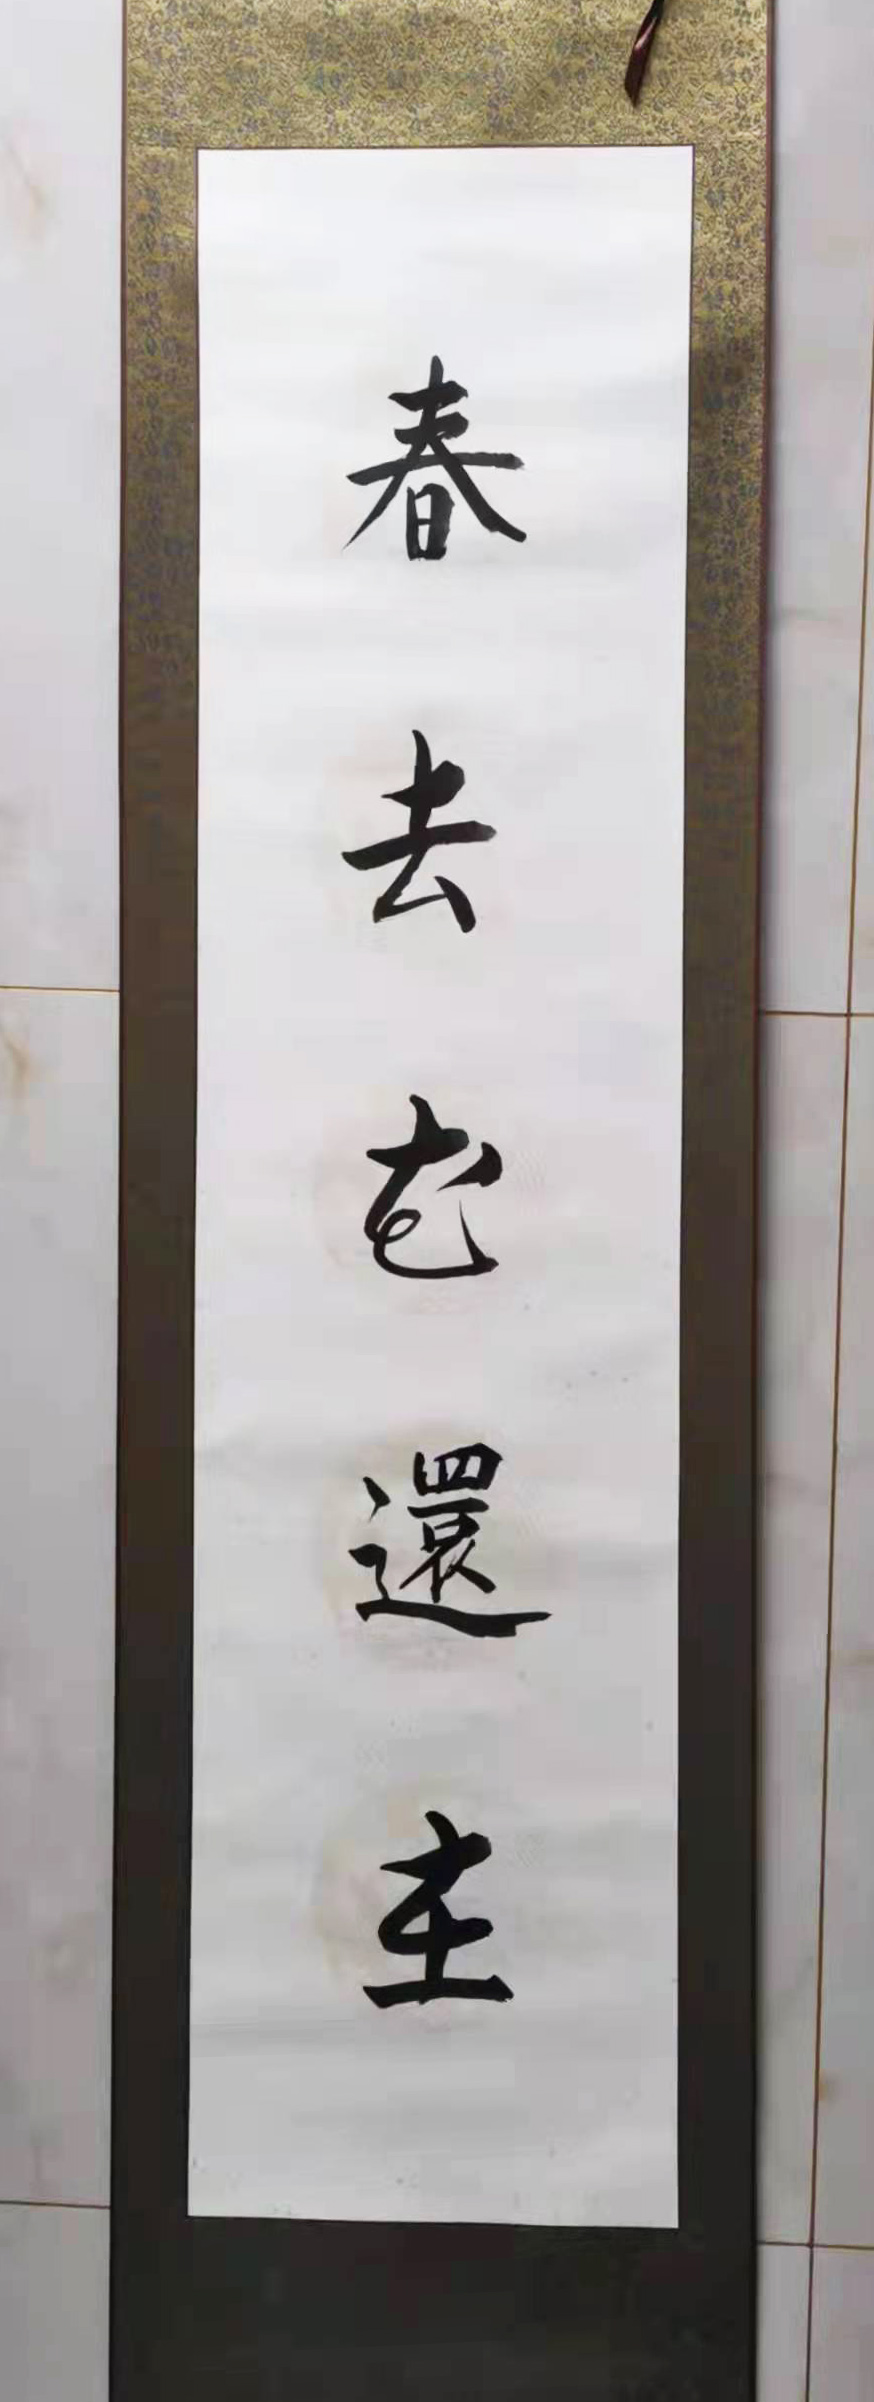 春去花還在